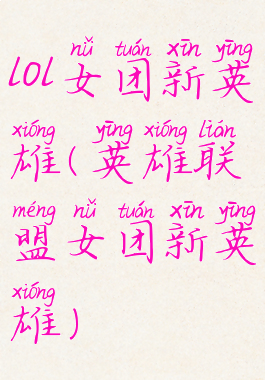 nǚ tuán xīn yīng
lol女团新英
xióng yīng xióng lián
雄(英雄联
méng nǚ tuán xīn yīng
盟女团新英
xióng
雄)